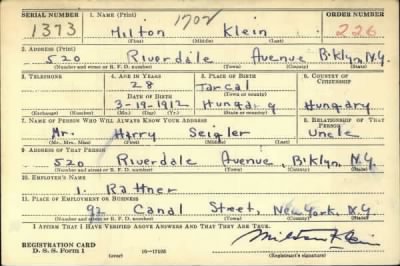 SERIAL NUMBER 1. NAME (Print) ORDER NUMBER
1373 Milton 1702 Klein 226
(First) (Middle) (Last)
2. ADDRESS (Print)
520 Riverdale Avenue B'klyn, N.Y.
(Number and street or R. F. D. number) (Town) (County) (State)
3. TELEPHONE 4. AGE IN YEARS 5. PLACE OF BIRTH 6. COUNTRY OF CITIZENSHIP
28 Tarcal
DATE OF BIRTH (Town or county)
3-19-1912 Hungary Hungary
(Exchange) (Number) (Mo.) (Day) (Yr.) (State or country)
7. NAME OF PERSON WHO WILL ALWAYS KNOW YOUR ADDRESS 8. RELATIONSHIP OF THAT PERSON
Mr. Harry Seigler Uncle
(Mr., Mrs., Miss) (First) (Middle) (Last)
9. ADDRESS OF THAT PERSON
520 Riverdale Avenue, B'klyn, N.Y.
(Number and street or R. F. D. number) (Town) (County) (State)
10. EMPLOYER'S NAME
I. Rattner
11. PLACE OF EMPLOYMENT OR BUSINESS
92 Canal Street, New York, N.Y.
(Number and street or R. F. D. number) (Town) (County) (State)
I AFFIRM THAT I HAVE VERIFIED ABOVE ANSWERS AND THAT THEY ARE TRUE.
REGISTRATION CARD
D. S. S. Form 1 (over) Milton Klein
(Registrant's signature)